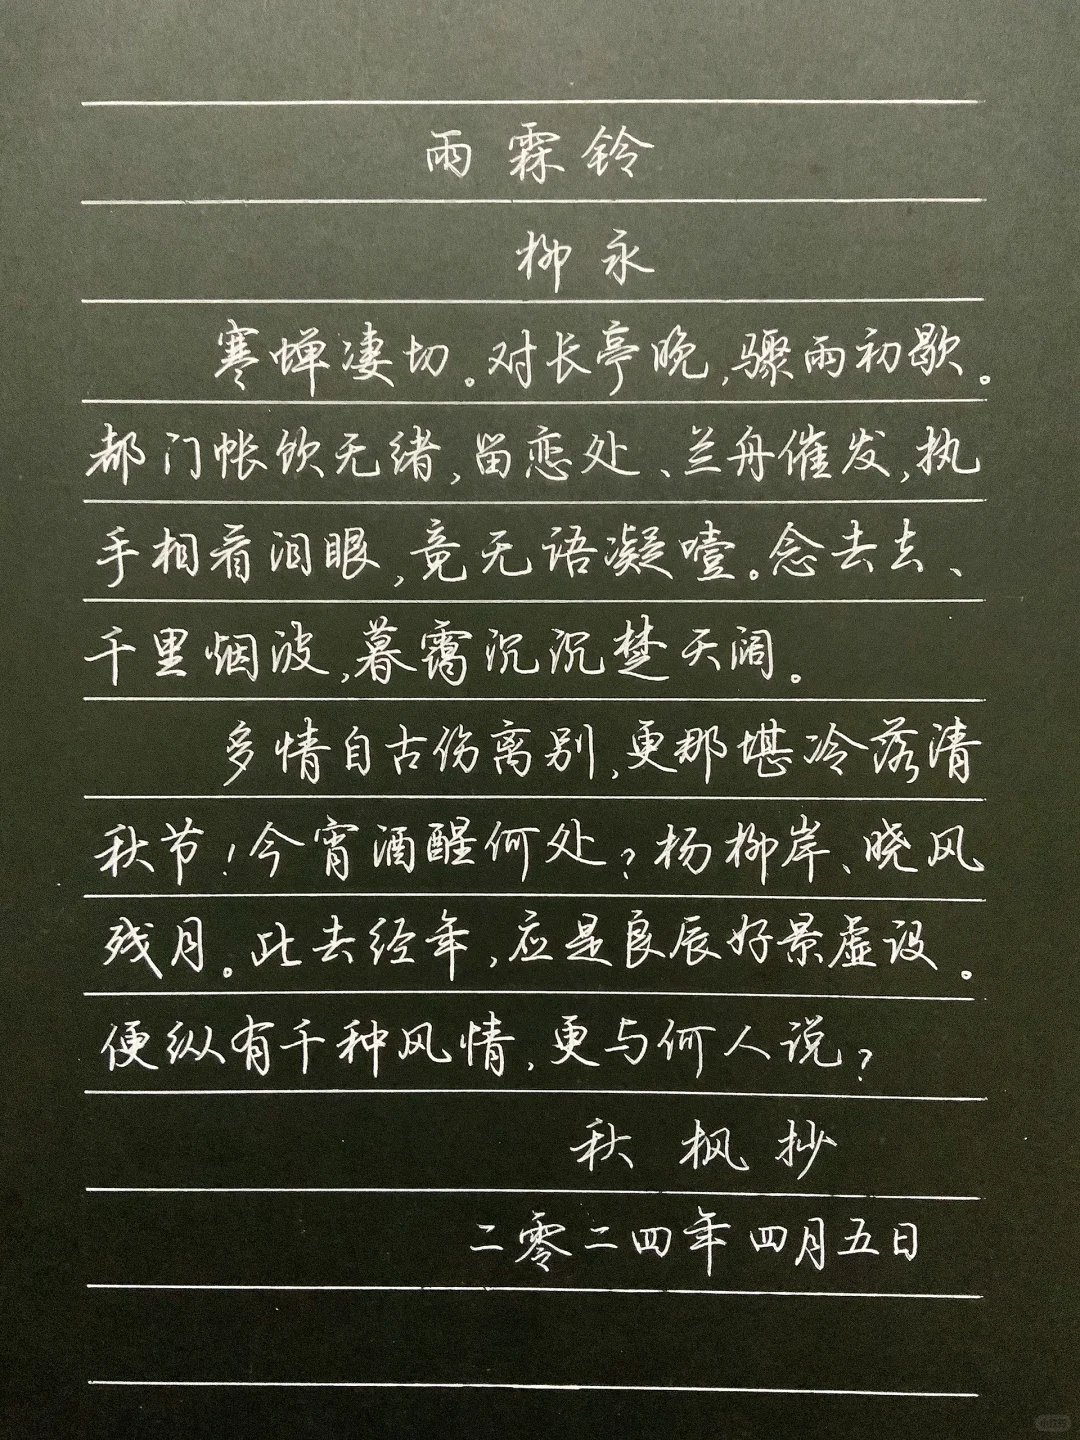 雨霖铃
柳永
寒蝉凄切。对长亭晚,骤雨初歇。
都门帐饮无绪,留恋处、兰舟催发,执
手相看泪眼,竟无语凝噎。念去去、
千里烟波,暮霭沉沉楚天阔。
多情自古伤离别,更那堪冷落清
秋节!今宵酒醒何处?杨柳岸、晓风
残月。此去经年,应是良辰好景虚设。
便纵有千种风情,更与何人说?
秋枫抄
二零二四年四月五日
小红书